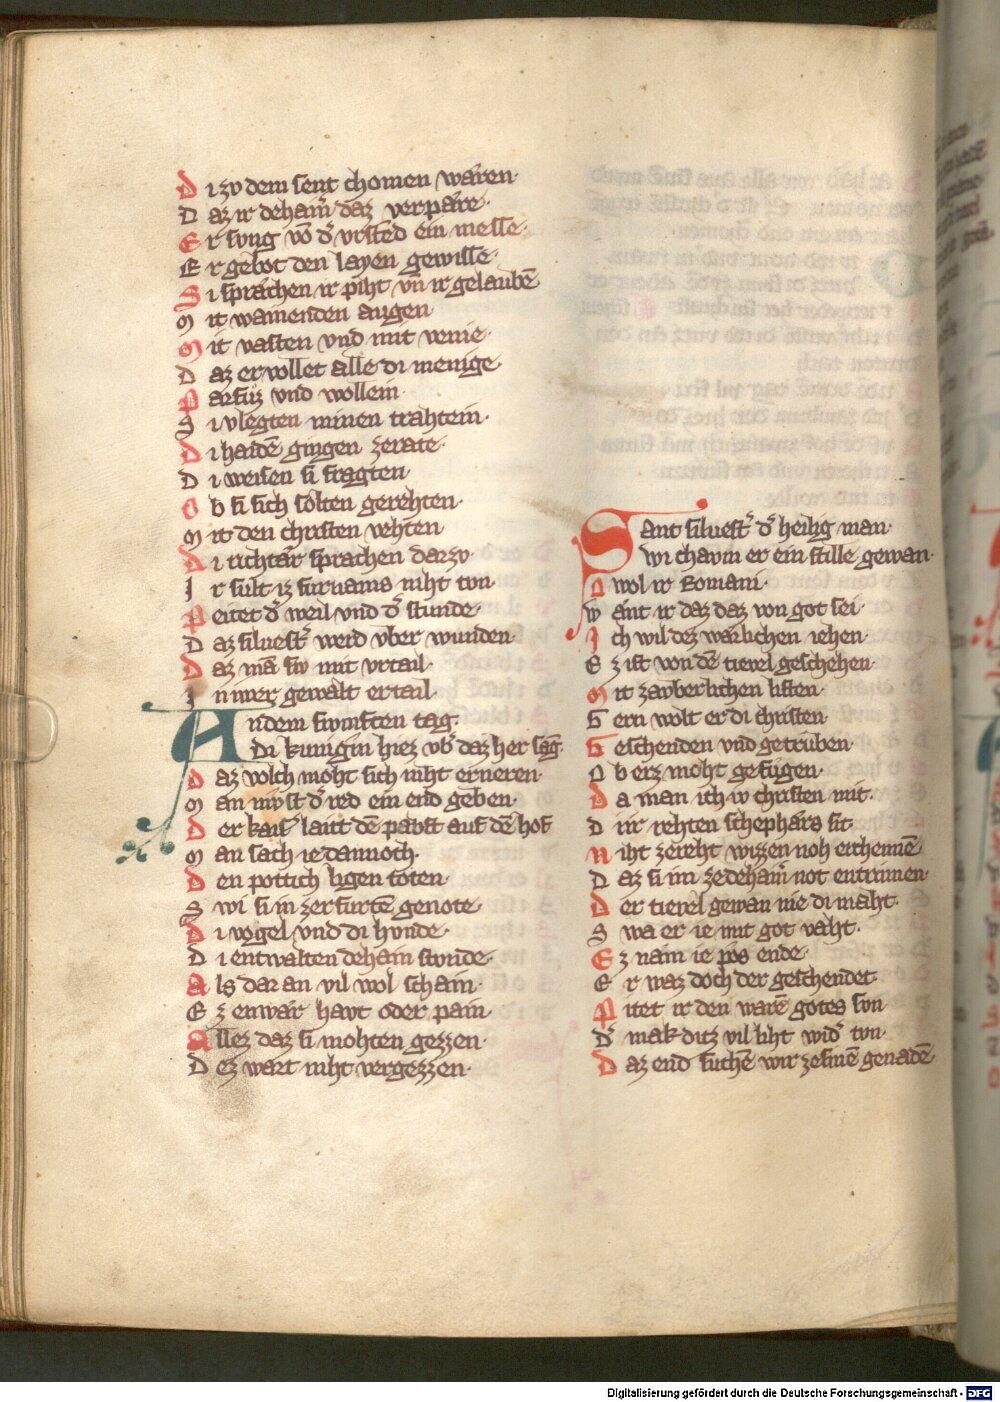 D i zv dem sent chomen waren·
D az ir dehaim̄ daz verpäre·
E r svng vō d̾ vrsted ein messe·
E r gebot den layen gewisse·
S i sprachen ir piht vn̄ ir gelaubē
M it wainenden augen·
M it vasten vnd mit venie·
D az er wollet alle di menige
P arfuz vnd wollein
S i vlegten minen trahtein·
D i haidē gingen ze rate·
D i weisen si fragten·
O b si sich solten gerehten·
M it den christen vehten
D i richtär sprachen dar zv·
I r sult iz furnams niht tvn
P eitet d̾ weil vnd d̾ stunde
D az siluest̾ werd vber wunden·
D az mā siv mit vrtail·
I n iwer gewalt ertail·
An dem fivmften tag·
Di kunigin hiez vb̾ daz her sag̅·
D az volch moht sich niht erneren·
M an mvst d̾ red ein end geben·
D er kais̾ lait dē pabst auf dē hof
M an sach ie dannoch·
D en pottich ligen toten·
S wi si in zerfurtē genote·
D i vogel vnd di hvnde·
D i entwalten dehain stvnde·
A ls dar an vil wol schain·
E z enwär havt oder pain·
A llez daz si mohten gezzen·
D ez wart niht vergezzen·
Sant siluest̾ d̾ heilig man·
Wi chavm er ein stille gewan·
N v wol ir Romani·
W änt ir daz daz von got sei·
I ch wil dez wärlichen iehen·
E z ist von dē tievel geschehen·
M it zauberlichen listen·
G ern wolt er di christen·
G eschenden vnd getrüben·
O b erz moht gefugen·
D a man ich iv christen mit·
D i ir rehten schephärs sit·
N iht zereht wizzen noh erchennē
D az si im ze dehaim̄ not entrinnen·
D er tievel gewan nie di maht·
S wa er ie mit got vaht·
E z nam ie pös ende·
E r waz doch der geschendet·
P itet ir den warē gotes svn
D̾ mak ditz vil liht wid̾ tvn·
D az end suchē wir ze sinē genadē
Digitalisierung gefördert durch die Deutsche Forschungsgemeinschaft - DFG